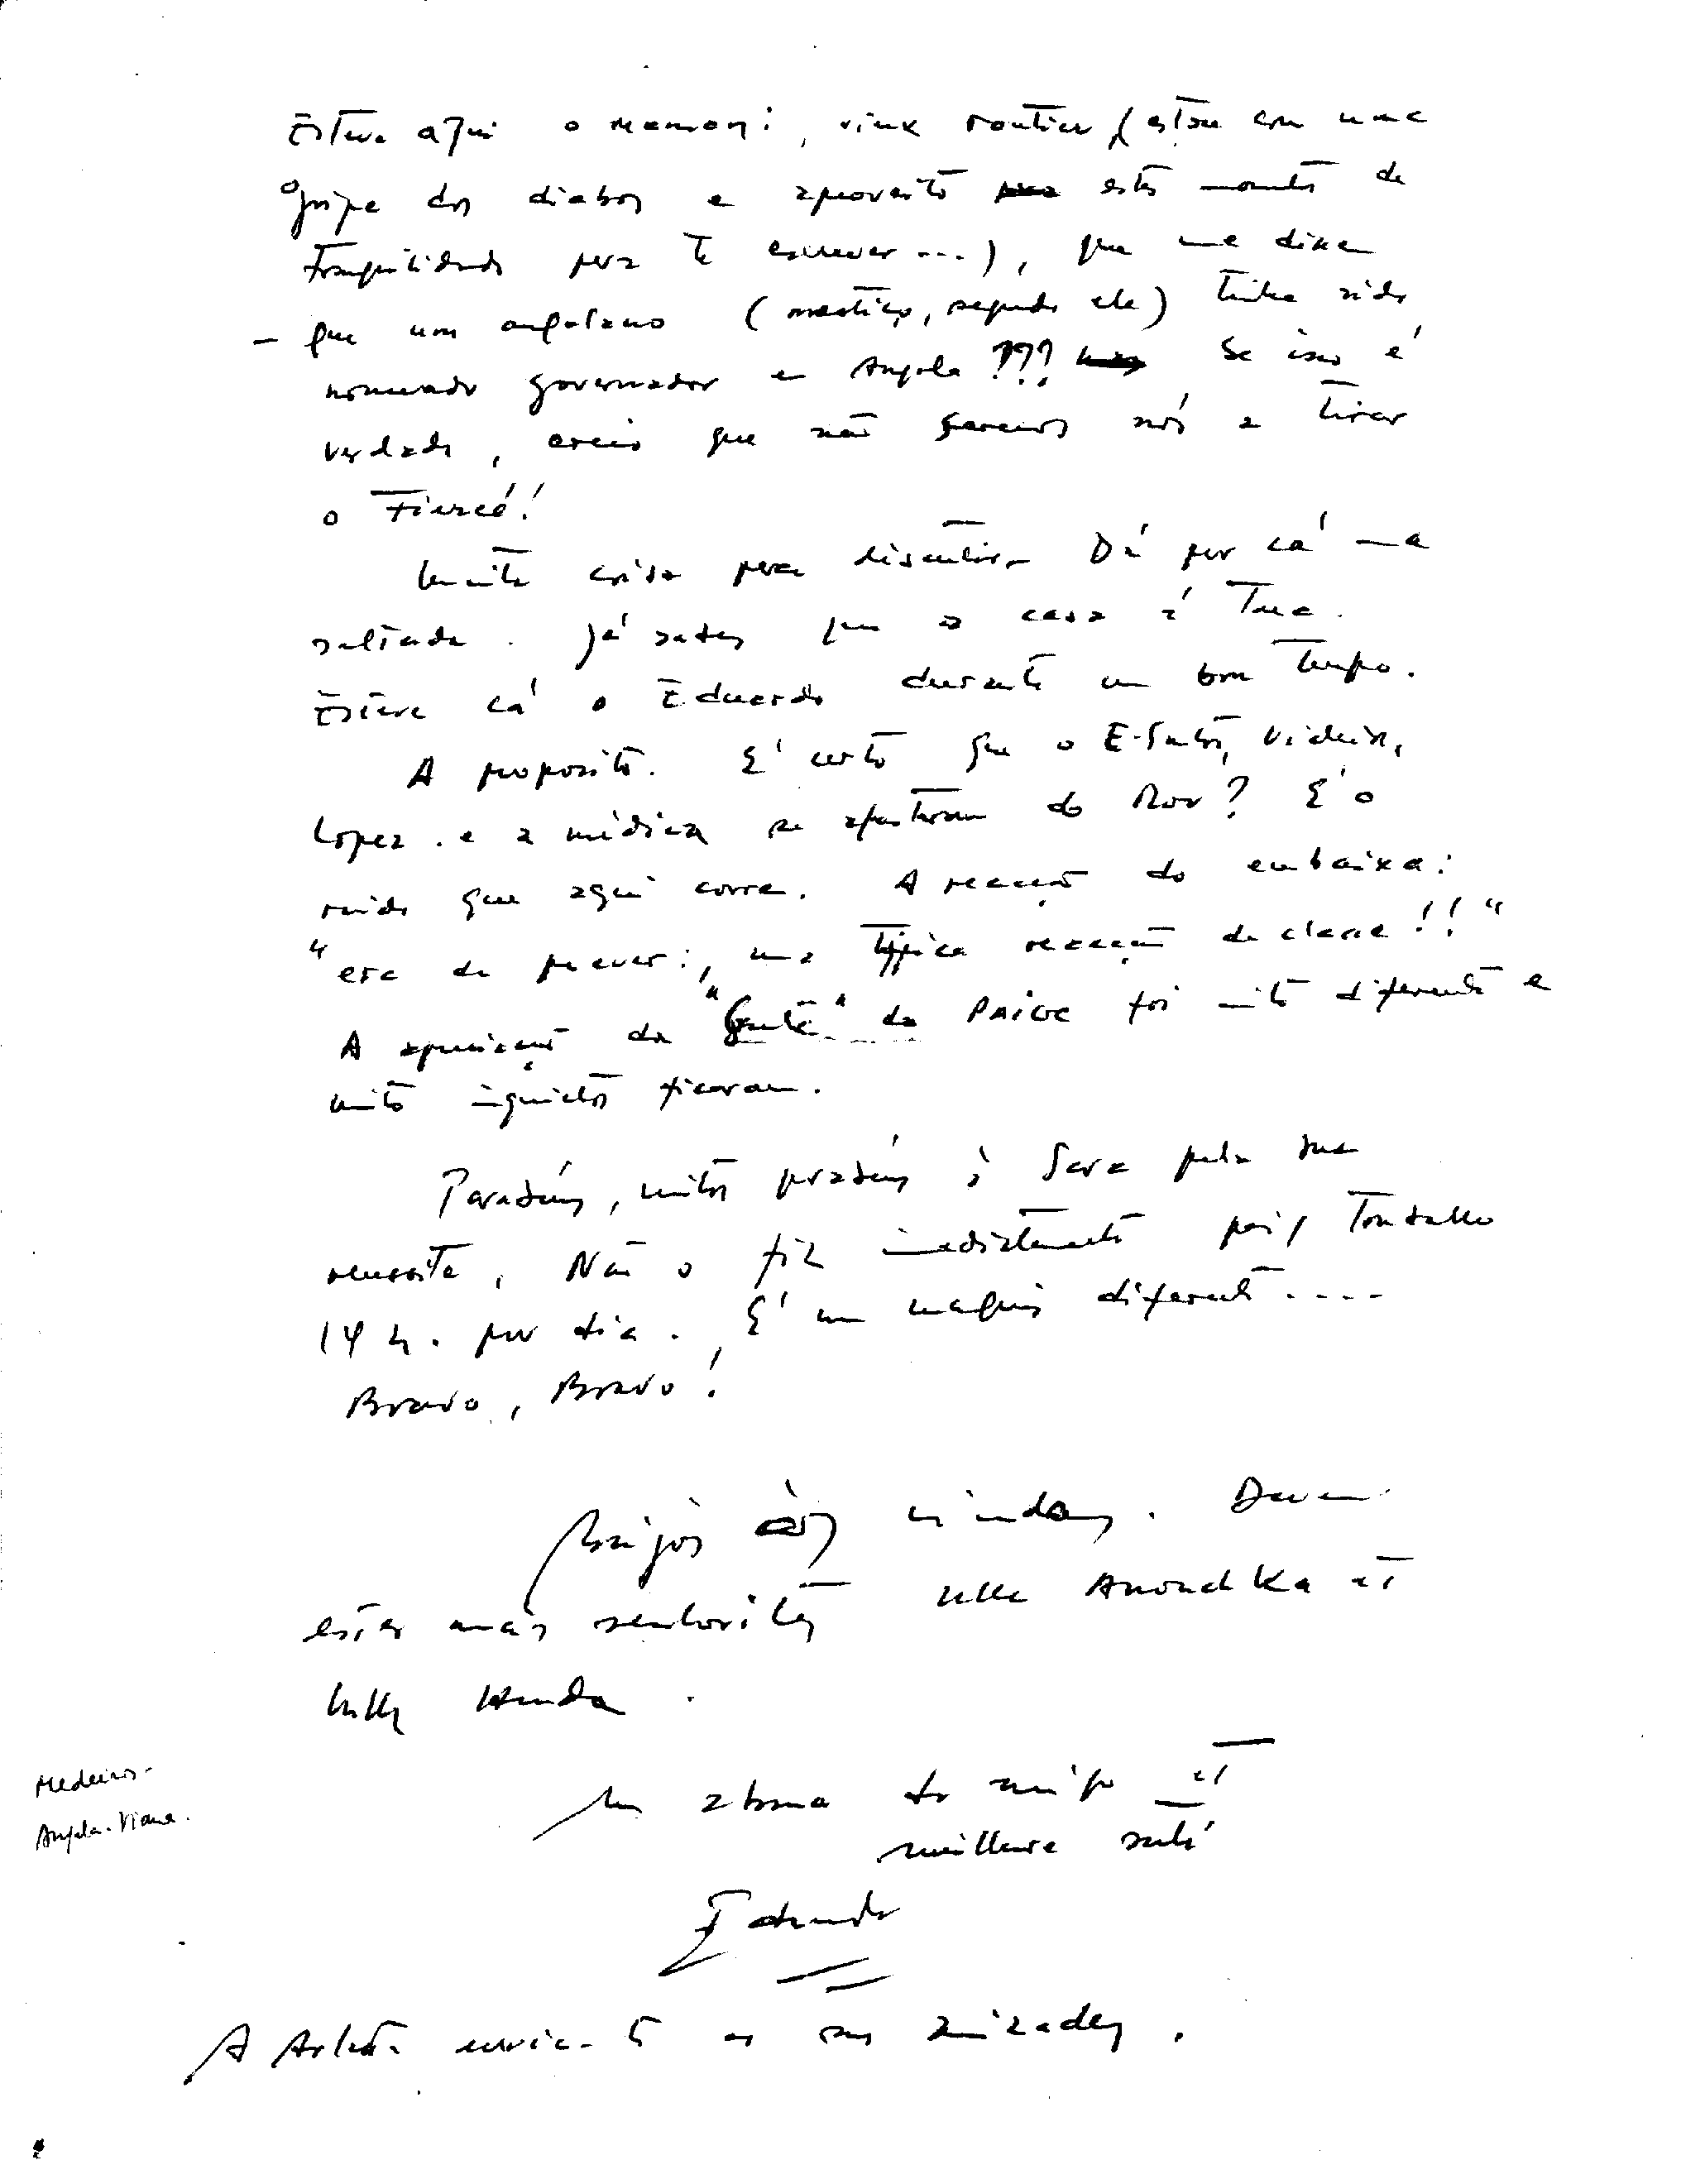 Esteve aqui o, vieux routier (estou com uma
gripe dos diabos e aproveito este momento de
tranquilidade para te escrever...), que me disse
- que um angolano (mestiço, segundo ele) tinha sido
nomeado governador em Angola??? Se isso é
verdade, creio que não seremos nós a tirar
o Tiercé!
Muita coisa para discutir. Dá por cá uma
saltada. Já sabes que a casa é tua.
Esteve cá o Eduardo durante um bom tempo.
A proposito. É certo que o E. Santos, Videira,
Lopez e a médica se afastaram do Mov? É o
ruido que aqui corre. A reacção do embaixa:
"era de prever:, uma típica reacção de classe!!"
A apreciação da "Gente" do PAIGC foi muito diferente e
muito inquietos ficaram.
Parabéns, muitos parabéns à Sara pela sua
reussite. Não o fiz imediatamente pois, trabalho
14 h. por dia. É um maquis diferente....
Bravo, Bravo!
Beijos às miudas. Devem
estar umas senhoritas Mlle Anouchka et
Mlle Henda.
Um abraço do amigo et
meilleure santé
Eduardo
A Arlete envia-te as suas amizades.
Medeiros-
Angola. Viana.